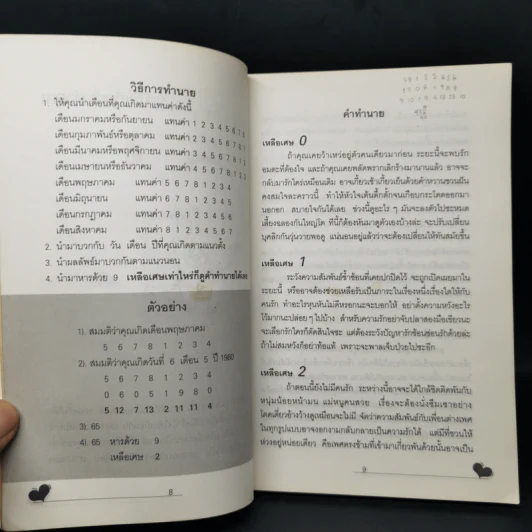 วิธีการทำนาย
1. ให้คุณนำเดือนที่คุณเกิดมาแทนค่าดังนี้
เดือนมกราคมหรือกันยายน แทนค่า 1 2 3 4 5 6 7 8
เดือนกุมภาพันธ์หรือตุลาคม แทนค่า 2 3 4 5 6 7 8
เดือนมีนาคมหรือพฤศจิกายน แทนค่า 3 4 5 6 7 8 1
เดือนเมษายนหรือธันวาคม แทนค่า 4 5 6 7 8 1 2
เดือนพฤษภาคม แทนค่า 5 6 7 8 1 2 3 4
เดือนมิถุนายน แทนค่า 6 7 8 1 2 3 4 5
เดือนกรกฎาคม แทนค่า 7 8 1 2 3 4 5 6
เดือนสิงหาคม แทนค่า 8 1 2 3 4 5 6 7
2. นำมาบวกกับ วัน เดือน ปีที่คุณเกิดตามแนวตั้ง
3. นำผลลัพธ์มาบวกกันตามแนวนอน
4. นำมาหารด้วย 9 เหลือเศษเท่าไหร่ก็ดูคำทำนายได้เลย
ตัวอย่าง
1). สมมติว่าคุณเกิดเดือนพฤษภาคม
5 6 7 8 1 2 3 4
2). สมมติว่าคุณเกิดวันที่ 6 เดือน 5 ปี 1980
5 6 7 8 1 2 3 4
0 6 0 5 1 9 8 0
5 12 7 13 2 11 11 4
3). 65
4). 65 หารด้วย 9
เหลือเศษ 2
8
คำทำนาย
เหลือเศษ 0
ถ้าคุณเคยว้าเหว่อยู่ตัวคนเดียวมาก่อน ระยะนี้จะพบรัก
อมตะที่ต้องใจ และถ้าคุณเคยพลัดพรากเลิกร้างมานานแล้ว อาจจะ
กลับมารักใคร่เหมือนเดิม อาจเกี้ยวเข้าเกี้ยวเย็นด้วยคำหวานชวนฝัน
คงสมใจละคราวนี้ ทำให้หัวใจเต้นตึ้กตั้กจนเกือบกระโดดออกมา
นอกอก สบายใจกันได้เลย ช่วงนี้ดูอะไร ๆ มันจะลงตัวไปซะหมด
เลี้ยงฉลองกันใหญ่โต ทีนี้ก็ต้องหันมาดูตัวเองบ้างล่ะ จะปรับเปลี่ยน
บุคลิกกันวุ่นวายพอดู แน่นอนอยู่แล้วว่าจะต้องเปลี่ยนให้ทันสมัยขึ้น
เหลือเศษ 1
ระวังความสัมพันธ์ซ้ำซ้อนที่เคยปกปิดไว้ จะถูกเปิดเผยมาใน
ระยะนี้ หรืออาจต้องช่วยเหลือรับเป็นภาระในเรื่องหนึ่งเรื่องใดให้กับ
คนรัก ทำอะไรหุนหันไม่ดีหรอกนะจะบอกให้ อย่าตั้งความหวังอะไร
ไว้มากนะปล่อยๆ ไปบ้าง สำหรับความรักอย่าจับปลาสองมือเชียวนะ
จะเลือกรักใครก็ตัดสินใจซะ แต่ต้องระวังปัญหารักซ้อนซ่อนรักด้วยล่ะ
ถ้าไม่สมหวังก็อย่าท้อแท้ เพราะจะพาลเจ็บป่วยไปซะอีก
เหลือเศษ 2
ถ้าตอนนี้ยังไม่มีคนรัก ระหว่างนี้อาจจะได้ใกล้ชิดติดพันกับ
หนุ่มน้อยหน้ามน แม่หนูคนสวย เรื่องจะต้องนั่งซึมเซาอย่าง
โดดเดี่ยวอ้างว้างดูเหมือนจะไม่มี จัดว่าความสัมพันธ์กับเพื่อนต่างเพศ
ในทุกรูปแบบอาจงอกงามกลับกลายเป็นความรักได้ แต่มีที่ชวนให้
ห่วงอยู่หน่อยเดียว คือเพศตรงข้ามที่เข้ามาเกี่ยวพันด้วยนั้นอาจเป็น
9